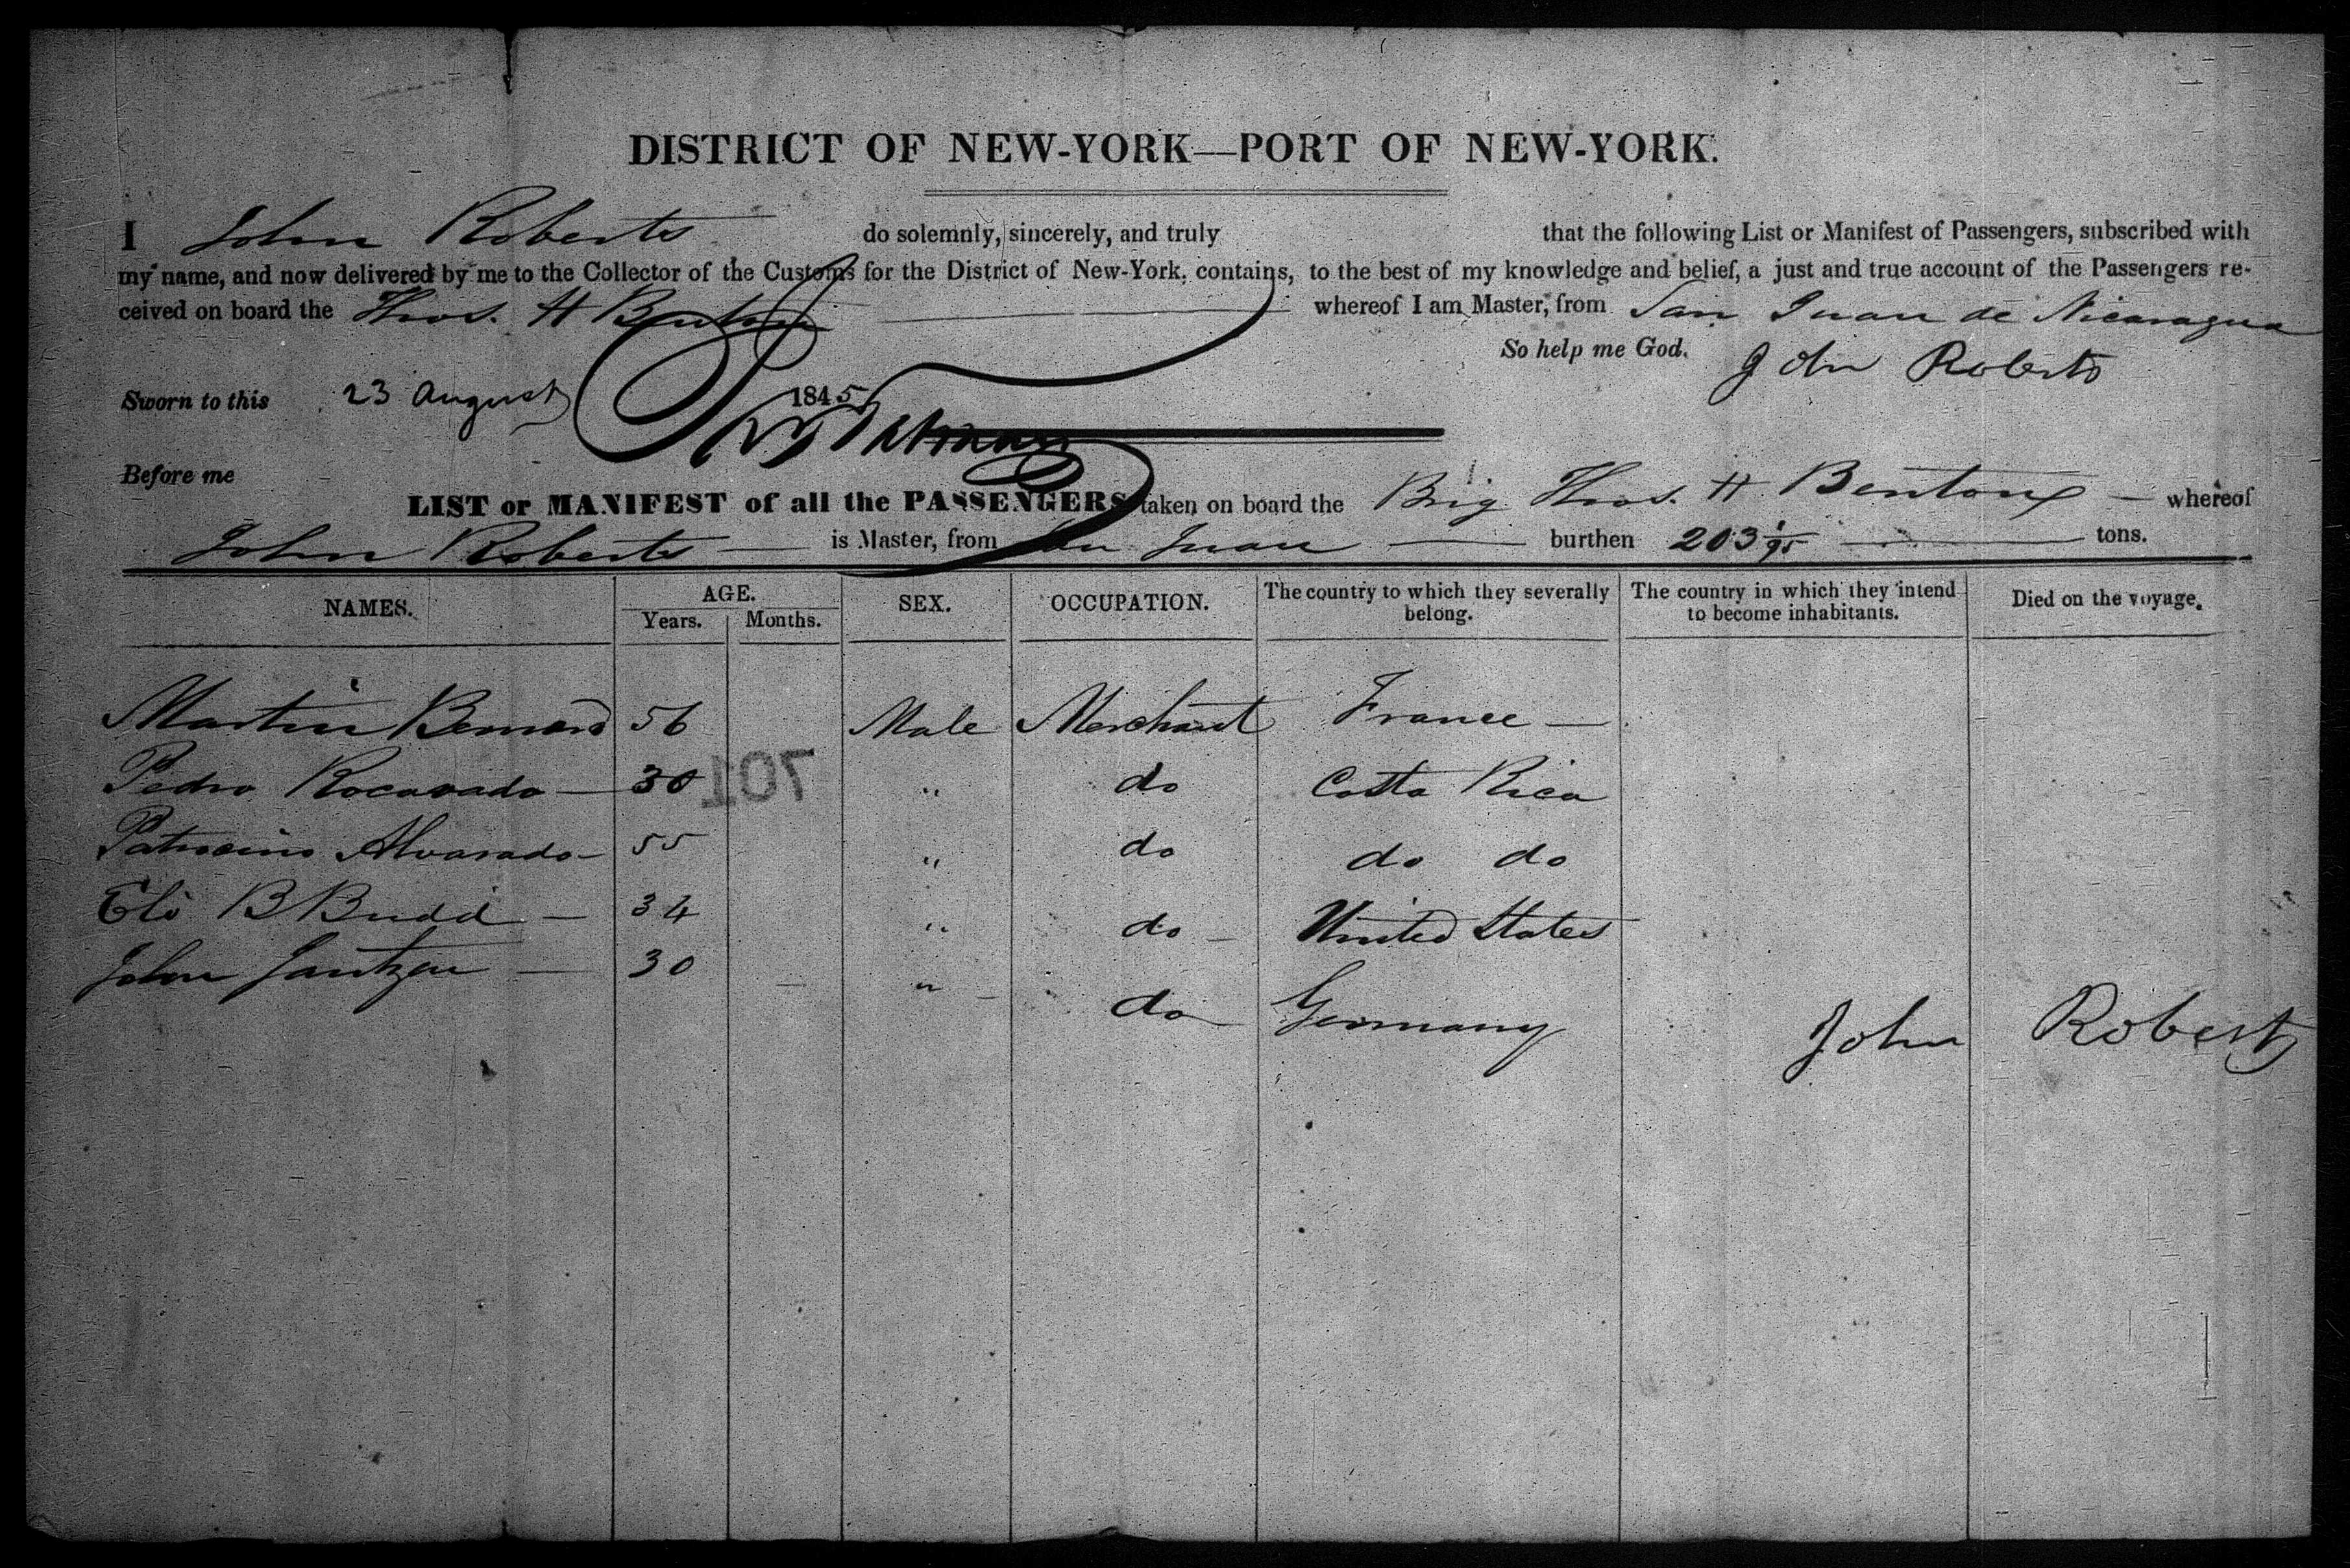 DISTRICT OF NEW-YORK—PORT OF NEW-YORK.
I John Roberts do solemnly, sincerely, and truly that the following List or Manifest of Passengers, subscribed with
my name, and now delivered by me to the Collector of the Customs for the District of New-York, contains, to the best of my knowledge and belief, a just and true account of the Passengers re-
ceived on board the Thos. H Benton whereof I am Master, from San Juan de Nicaragua
So help me God. John Roberts
Sworn to this 23 August 1845
Before me
LIST or MANIFEST of all the PASSENGERS taken on board the Brig Thos. H Benton — whereof
John Roberts — is Master, from San Juan — burthen 203 1/95 — tons.
NAMES. AGE. SEX. OCCUPATION. The country to which they severally belong. The country in which they intend to become inhabitants. Died on the voyage.
Years. Months.
Martin Bernard 56 Male Merchant France —
Pedro Rocavado — 30 " do Costa Rica
701
Patrocino Alvarado — 55 " do do do
Eli B Budd — 34 " do — United States
John Jantzen — 30 — " — do Germany
John Roberts